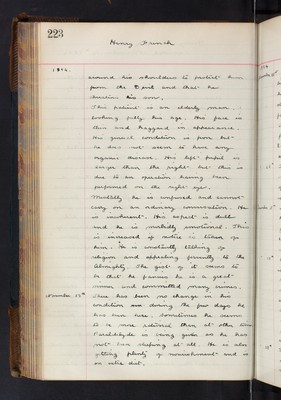 223
Henry French
1894.
around his shoulders to protect him
from the Devil and that he
deserves his son.
This patient is an elderly man
looking fully his age. His face is
thin and haggard in appearance.
His general condition is poor but
he does not seem to have any
organic disease. His left pupil is
larger than the right but this is
due to an operation having been
performed on the right eye.
Mentally he is confused and cannot
carry on an ordinary conversation. He
is incoherent. His aspect is dull
and he is morbidly emotional. This
is increased if notice is taken of
him. He is constantly talking of
religion and appealing piteously to the
Almighty. The gist of it seems to
be that he fancies he is a great
sinner and committed many crimes.
November 14th There has been no change in his
condition during the few days he
has been here. Sometimes he seems
to be more restless than at other times
Paraldehyde is being given as he has
not been sleeping at all. He is also
getting plenty of nourishment and is
on extra diet.